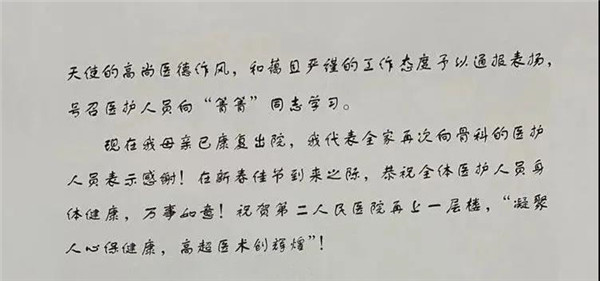 天使的高尚医德作风，和蔼且严谨的工作态度予以通报表扬，
号召医护人员向“箐箐”同志学习。
现在我母亲已康复出院，我代表全家再次向骨科的医护
人员表示感谢！在新春佳节到来之际，恭祝全体医护人员身
体健康，万事如意！祝贺第二人民医院再上一层楼，“凝聚
人心保健康，高超医术创辉煌”！